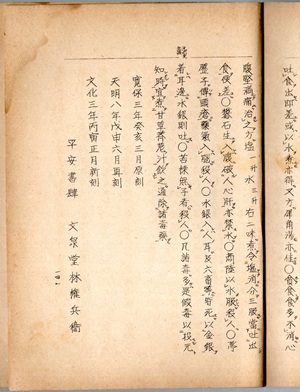 吐食出即差或以水煮亦得又方犀角湯亦佳〇食食食多不消心
腹堅滿痛治之方塩一升水三升右二味煮令塩消分三服當吐出
食便差〇礬石生入腹破人心肝亦禁水〇商陸以水服殺人〇葶
藶子傅頭瘡藥氣入腦殺人〇水銀入人耳及六畜等皆死以金銀
著耳邊水銀則吐〇苦楝無子者殺人〇凡諸毒多是假毒以投元
知時宜煮甘草薺苨汁飲之通除諸毒藥
寛保三年癸亥三月原刻
天明八年戊申六月再刻
文化三年丙寅正月新刻
平安書肆 文泉堂林權兵衛